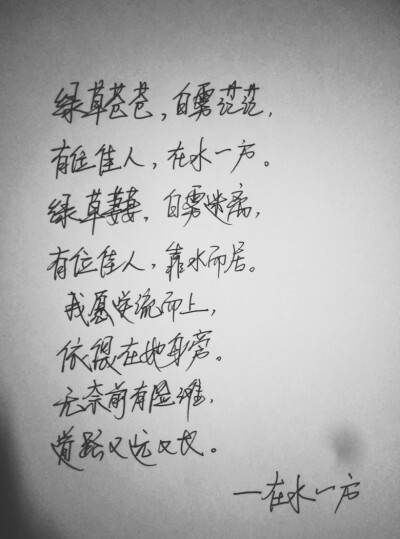 绿草苍苍，白雾茫茫，
有位佳人，在水一方。
绿草萋萋，白雾迷离，
有位佳人，靠水而居。
我愿逆流而上，
依偎在她身旁。
无奈前有险滩，
道路又远又长。
—在水一方